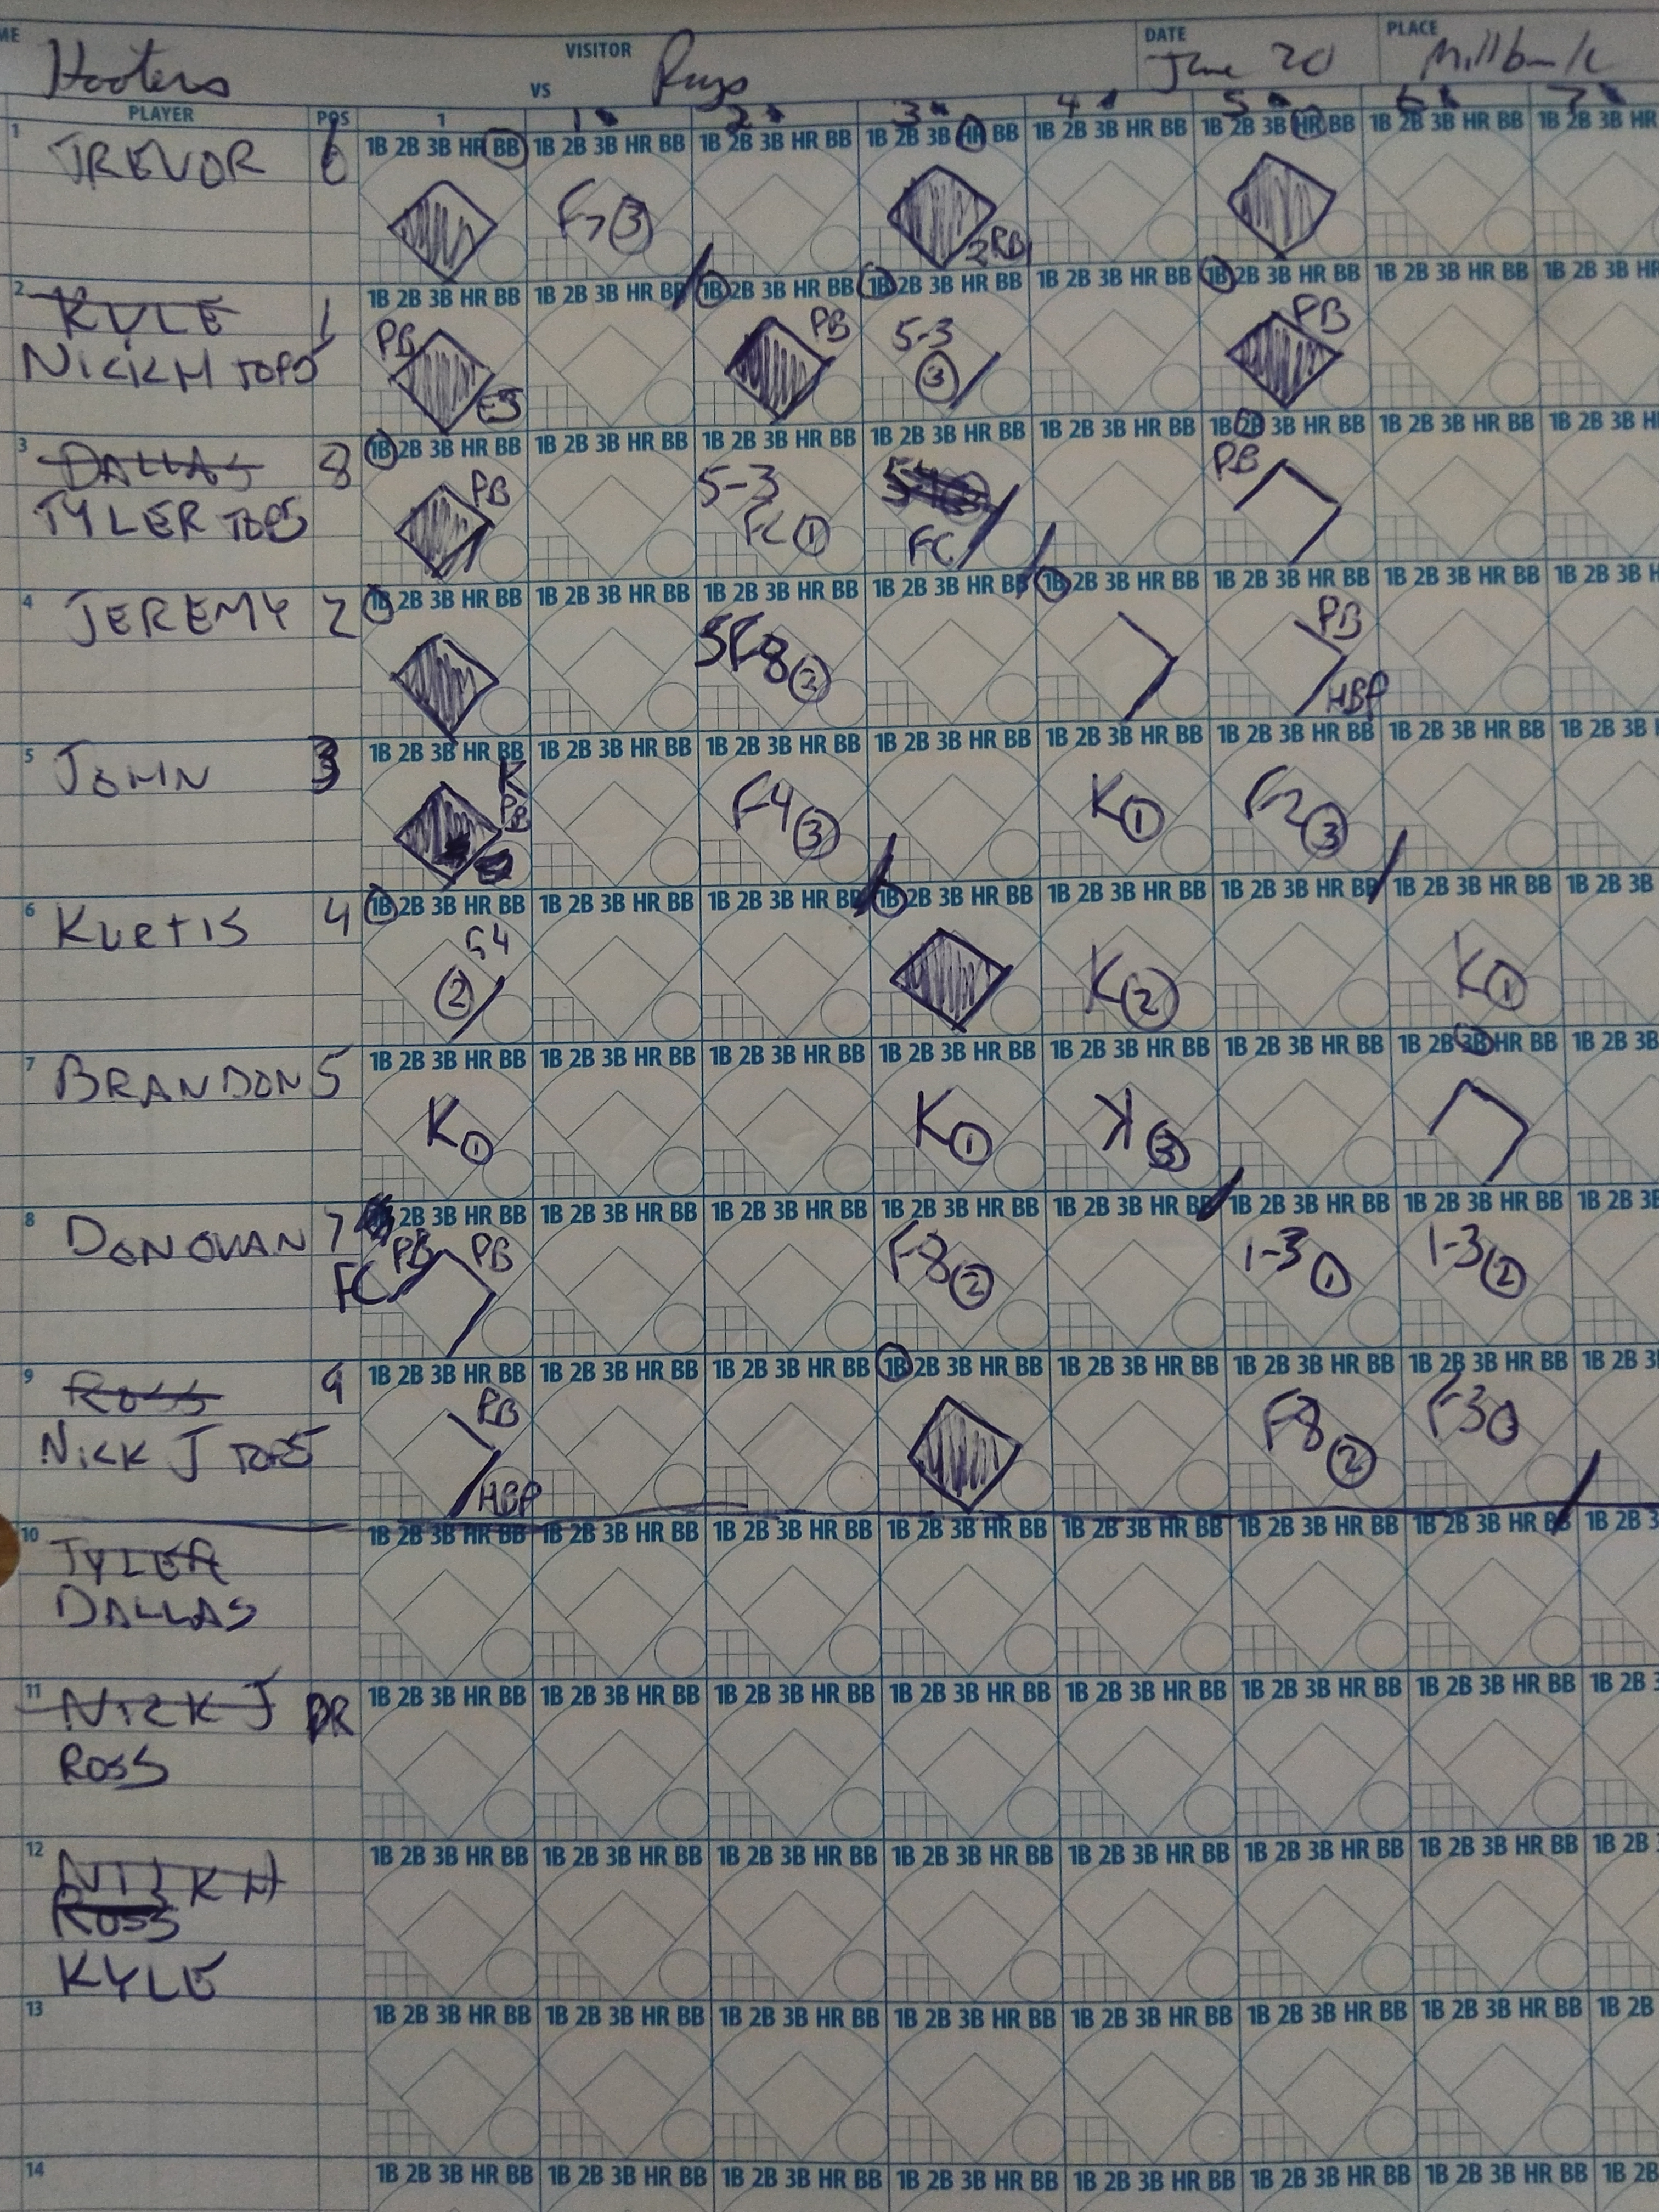 ME VISITOR DATE PLACE
Hooters VS Rays June 20 Millbank
PLAYER POS 1 1 2 3 4 5 6 7
1 1B 2B 3B HR BB 1B 2B 3B HR BB 1B 2B 3B HR BB 1B 2B 3B HR BB 1B 2B 3B HR BB 1B 2B 3B HR BB 1B 2B 3B HR BB 1B 2B 3B HR
TREVOR 6 F7 3 2RBI
2 1B 2B 3B HR BB 1B 2B 3B HR BB 1B 2B 3B HR BB 1B 2B 3B HR BB 1B 2B 3B HR BB 1B 2B 3B HR BB 1B 2B 3B HR BB 1B 2B 3B HR
KYLE 1 PB PB 5-3 PB
NICK H TOP5 E5 3
3 1B 2B 3B HR BB 1B 2B 3B HR BB 1B 2B 3B HR BB 1B 2B 3B HR BB 1B 2B 3B HR BB 1B 2B 3B HR BB 1B 2B 3B HR BB 1B 2B 3B HR
DALLAS 8 PB 5-3 PB
TYLER TOP5 FC 1 FC
4 1B 2B 3B HR BB 1B 2B 3B HR BB 1B 2B 3B HR BB 1B 2B 3B HR BB 1B 2B 3B HR BB 1B 2B 3B HR BB 1B 2B 3B HR BB 1B 2B 3B H
JEREMY 2 SF8 2 PB
HBP
5 1B 2B 3B HR BB 1B 2B 3B HR BB 1B 2B 3B HR BB 1B 2B 3B HR BB 1B 2B 3B HR BB 1B 2B 3B HR BB 1B 2B 3B HR BB 1B 2B 3B
JOHN 3 K PB F4 3 K 1 F2 3
6 1B 2B 3B HR BB 1B 2B 3B HR BB 1B 2B 3B HR BB 1B 2B 3B HR BB 1B 2B 3B HR BB 1B 2B 3B HR BB 1B 2B 3B HR BB 1B 2B 3B
KURTIS 4 G4 2 K 2 K 1
7 1B 2B 3B HR BB 1B 2B 3B HR BB 1B 2B 3B HR BB 1B 2B 3B HR BB 1B 2B 3B HR BB 1B 2B 3B HR BB 1B 2B 3B HR BB 1B 2B 3B
BRANDON 5 K 1 K 1 K 3
8 2B 3B HR BB 1B 2B 3B HR BB 1B 2B 3B HR BB 1B 2B 3B HR BB 1B 2B 3B HR BB 1B 2B 3B HR BB 1B 2B 3B HR BB 1B 2B 3B
DONOVAN 7 PB PB F8 2 1-3 1 1-3 2
FC
9 1B 2B 3B HR BB 1B 2B 3B HR BB 1B 2B 3B HR BB 1B 2B 3B HR BB 1B 2B 3B HR BB 1B 2B 3B HR BB 1B 2B 3B HR BB 1B 2B 3
ROSS 9 PB F8 2 F3
NICK J TOP5 HBP
10 1B 2B 3B HR BB 1B 2B 3B HR BB 1B 2B 3B HR BB 1B 2B 3B HR BB 1B 2B 3B HR BB 1B 2B 3B HR BB 1B 2B 3B HR BB 1B 2B 3
TYLER
DALLAS
11 1B 2B 3B HR BB 1B 2B 3B HR BB 1B 2B 3B HR BB 1B 2B 3B HR BB 1B 2B 3B HR BB 1B 2B 3B HR BB 1B 2B 3B HR BB 1B 2B
NICK J
ROSS
12 1B 2B 3B HR BB 1B 2B 3B HR BB 1B 2B 3B HR BB 1B 2B 3B HR BB 1B 2B 3B HR BB 1B 2B 3B HR BB 1B 2B 3B HR BB 1B 2B
NICK H
ROSS
KYLE
13 1B 2B 3B HR BB 1B 2B 3B HR BB 1B 2B 3B HR BB 1B 2B 3B HR BB 1B 2B 3B HR BB 1B 2B 3B HR BB 1B 2B 3B HR BB 1B 2B
14 1B 2B 3B HR BB 1B 2B 3B HR BB 1B 2B 3B HR BB 1B 2B 3B HR BB 1B 2B 3B HR BB 1B 2B 3B HR BB 1B 2B 3B HR BB 1B 2B